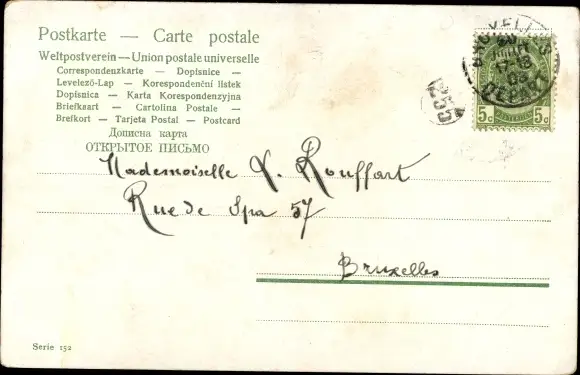 Postkarte — Carte postale
Weltpostverein — Union postale universelle
Correspondenzkarte — Dopisnice —
Levelező-Lap — Korespondenční listek
Dopisnica — Karta Korespondenzyjna
Briefkaart — Cartolina Postale —
Brefkort — Tarjeta Postal — Postcard
Дописна карта
ОТКРЫТОЕ ПИСЬМО
BRUXELLES
5c 5c
Mademoiselle L. Rouffart
Rue de Spa 57
Bruxelles
Serie 152